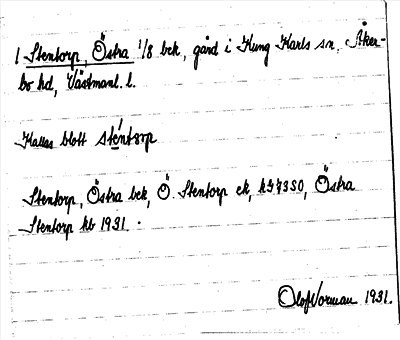 1 Stentorp, Östra 1/8 bek, gård i Kung Karls sn, Åker-
bo hd, Västmanl. l.
Kallas blott sténtorp
Stentorp, Östra bek, Ö. Stentorp ek, hS7350, Östra
Stentorp kb 1931.
Olof Norman 1931.